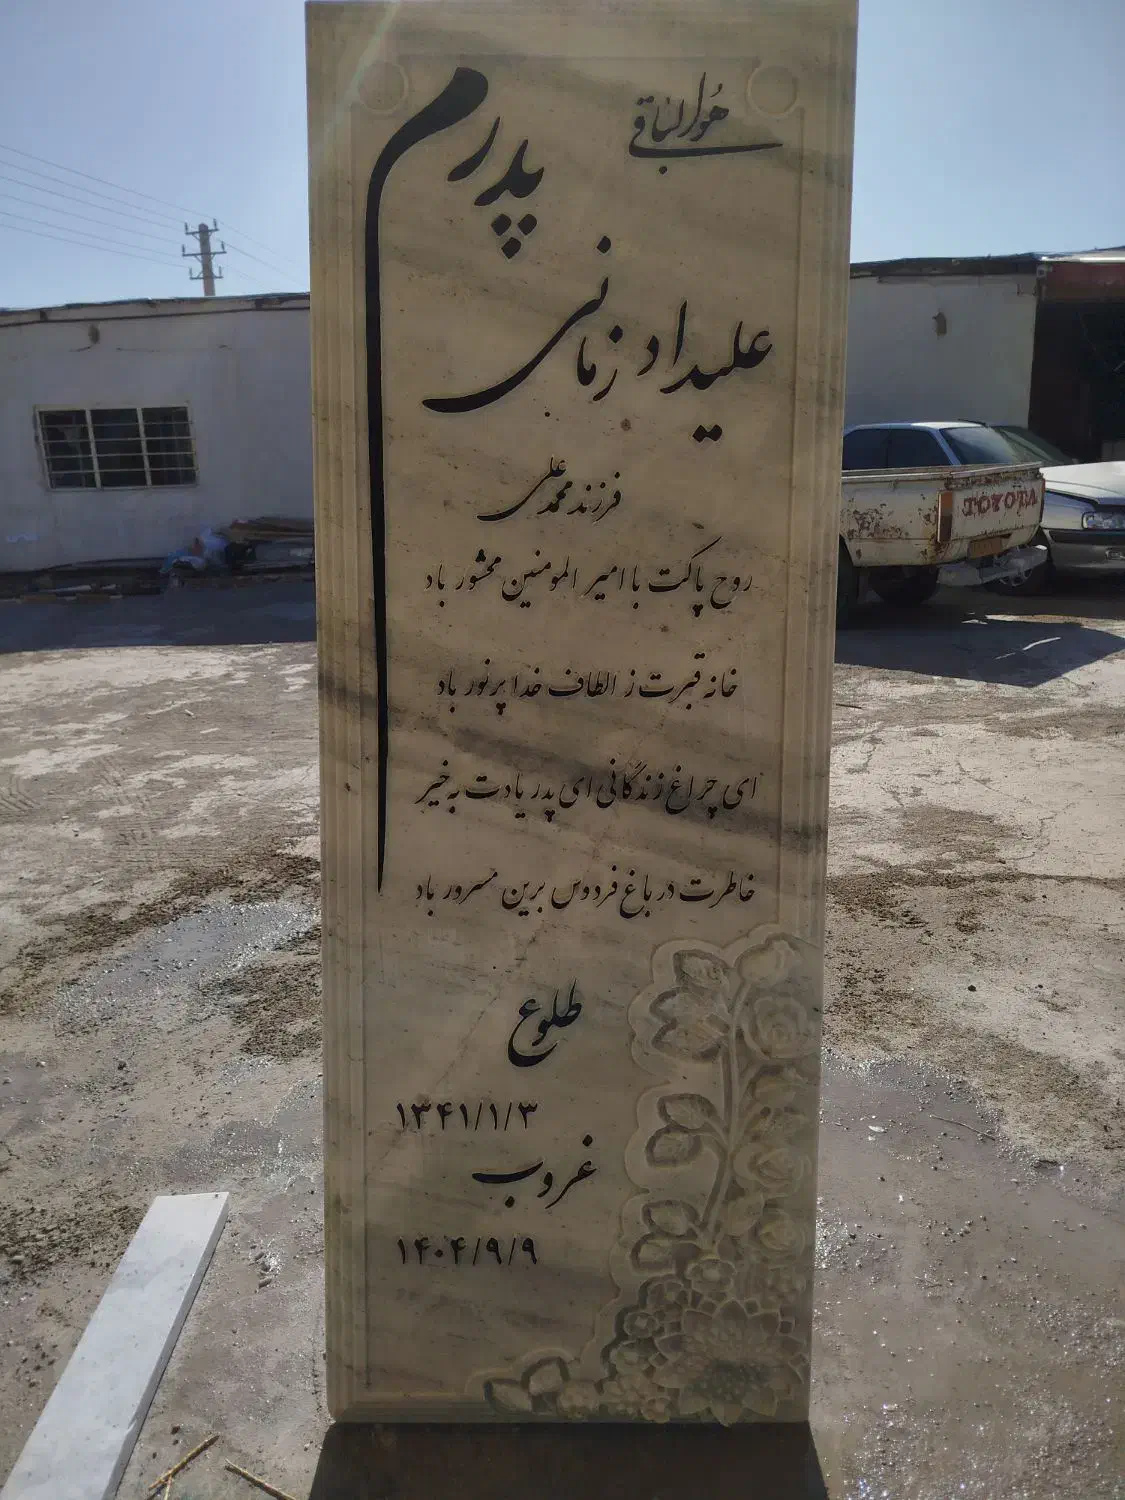 هُوَ الباقی
پدرم
علیداد زمانی
فرزند محمد علی
روح پاکت با امیر المومنین محشور باد
خانه قبرت ز الطاف خدا پر نور باد
ای چراغ زندگانی ای پدر یادت به خیر
خاطرت در باغ فردوس برین مسرور باد
طلوع
۱۳۴۱/۱/۳
غروب
۱۴۰۴/۹/۹
TOYOTA